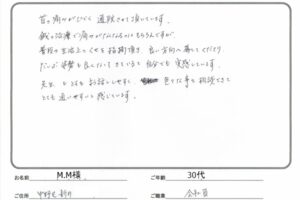 首の痛みがひどく 通院させて頂いています。
鍼の治療で痛みがなくなるのはもちろんですが、
普段の生活上のくせを指摘頂き、良い方向へ導いてくださり
だいぶ姿勢も良くなってきていると自分でも実感しています。
先生 とてもお話ししやすく 色々な事を相談できて
とても通いやすいと感じています。
お名前 M.M様 ご年齢 30代
ご住所 中野区新井 ご職業 会社員